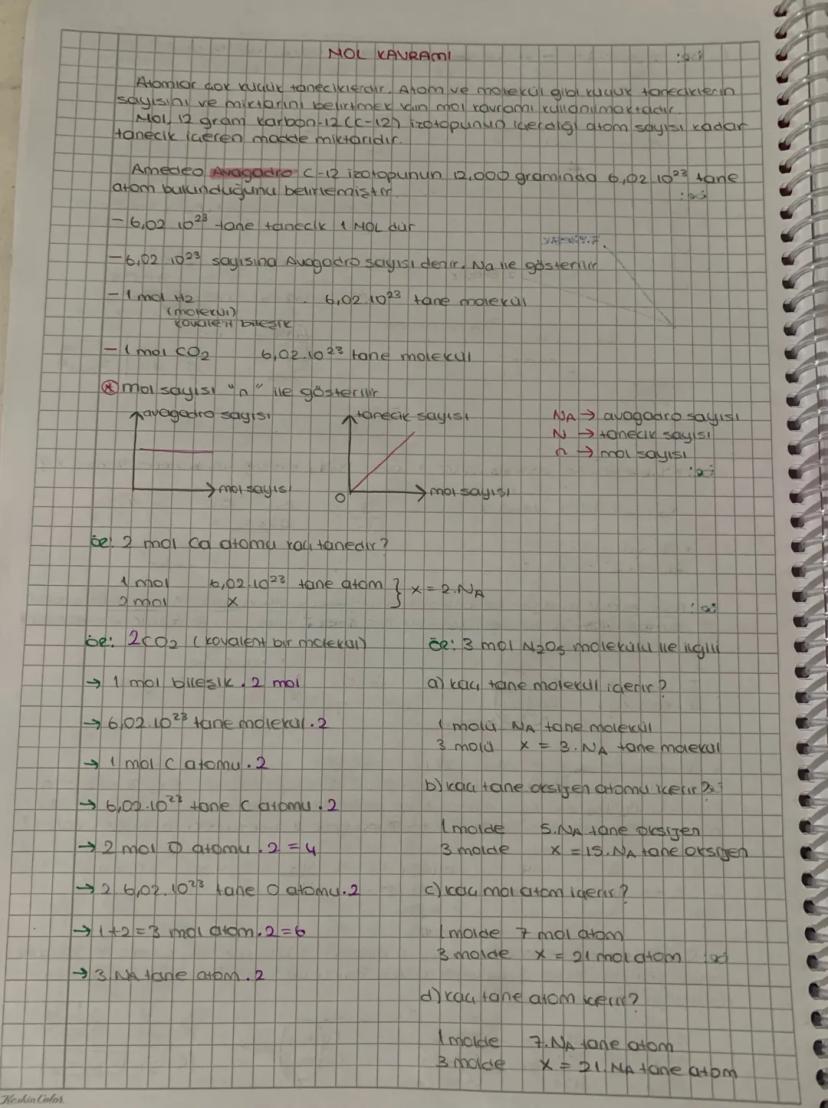 MOL KAVRAMI
Atomlar çok küçük taneciklerdir. Atom ve molekül gibi küçük taneciklerin
sayısını ve miktarını belirtmek için mol kavramı kullanılmaktadır.
Mol, 12 gram karbon-12 (C-12) izotopunun içerdiği atom sayısı kadar
tanecik içeren madde miktarıdır.
Amedeo Avagadro C-12 izotopunun 12,000 gramında 6,02.10²³ tane
atom bulunduğunu belirlemiştir.
- 6,02.10²³ tane tanecik 1 MOL dür
- 6,02.10²³ sayısına Avogadro sayısı denir. Na ile gösterilir
- 1 mol H2 6,02.10²³ tane molekül
(molekül)
kovalent bileşik
- 1 mol CO2 6,02.10²³ tane molekül
* mol sayısı "n" ile gösterilir
avogadro sayısı tanecik sayısı
NA → avogadro sayısı
N → tanecik sayısı
n → mol sayısı
mol sayısı 0 mol sayısı
ör: 2 mol Ca atomu kaç tanedir?
1 mol 6,02.10²³ tane atom } x = 2.NA
2 mol x
ör: 2CO2 (kovalent bir molekül)
→ 1 mol bileşik . 2 mol
→ 6,02.10²³ tane molekül . 2
→ 1 mol C atomu . 2
→ 6,02.10²³ tane C atomu . 2
→ 2 mol O atomu . 2 = 4
→ 2 6,02.10²³ tane O atomu . 2
→ 1+2=3 mol atom . 2 = 6
→ 3.NA tane atom . 2
ör: 3 mol N2O5 molekülü ile ilgili
a) kaç tane molekül içerir?
1 molü NA tane molekül
3 molü x = 3.NA tane molekül
b) kaç tane oksijen atomu içerir?
1 molde 5.NA tane oksijen
3 molde x = 15.NA tane oksijen
c) kaç mol atom içerir?
1 molde 7 mol atom
3 molde x = 21 mol atom
d) kaç tane atom içerir?
1 molde 7.NA tane atom
3 molde x = 21.NA tane atom
Keskin Color